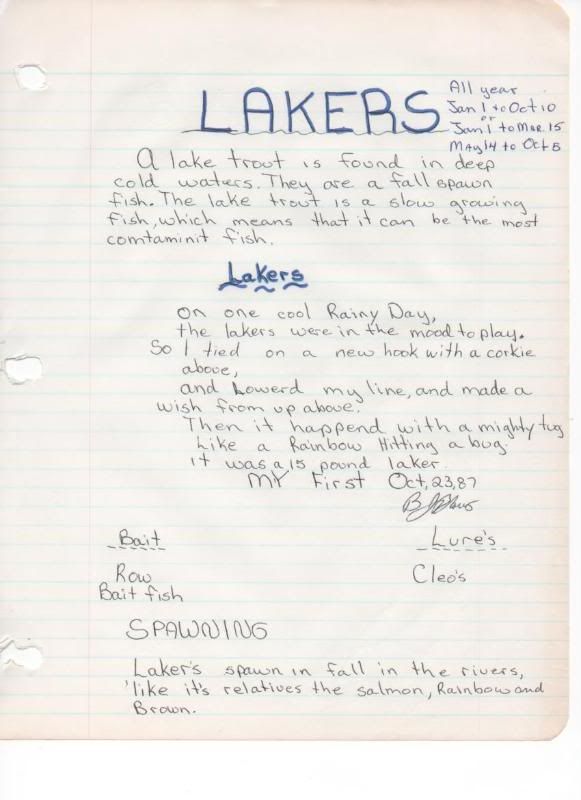 LAKERS
All year
Jan 1 to Oct 10
or
Jan 1 to Mar 15
May 14 to Oct 8
A lake trout is found in deep
cold waters. They are a fall spawn
fish. The lake trout is a slow growing
fish, which means that it can be the most
comtaminit fish.
Lakers
on one cool Rainy Day,
the lakers were in the mood to play.
So I tied on a new hook with a corkie
above,
and Lowerd my line, and made a
wish from up above.
Then it happend with a mighty tug
Like a Rainbow Hitting a bug.
it was a 15 pound laker.
MY First Oct, 23, 87
Bait
Lure's
Row
Cleo's
Bait fish
SPAWNING
Laker's spawn in fall in the rivers,
'like it's relatives the salmon, Rainbow and
Brown.